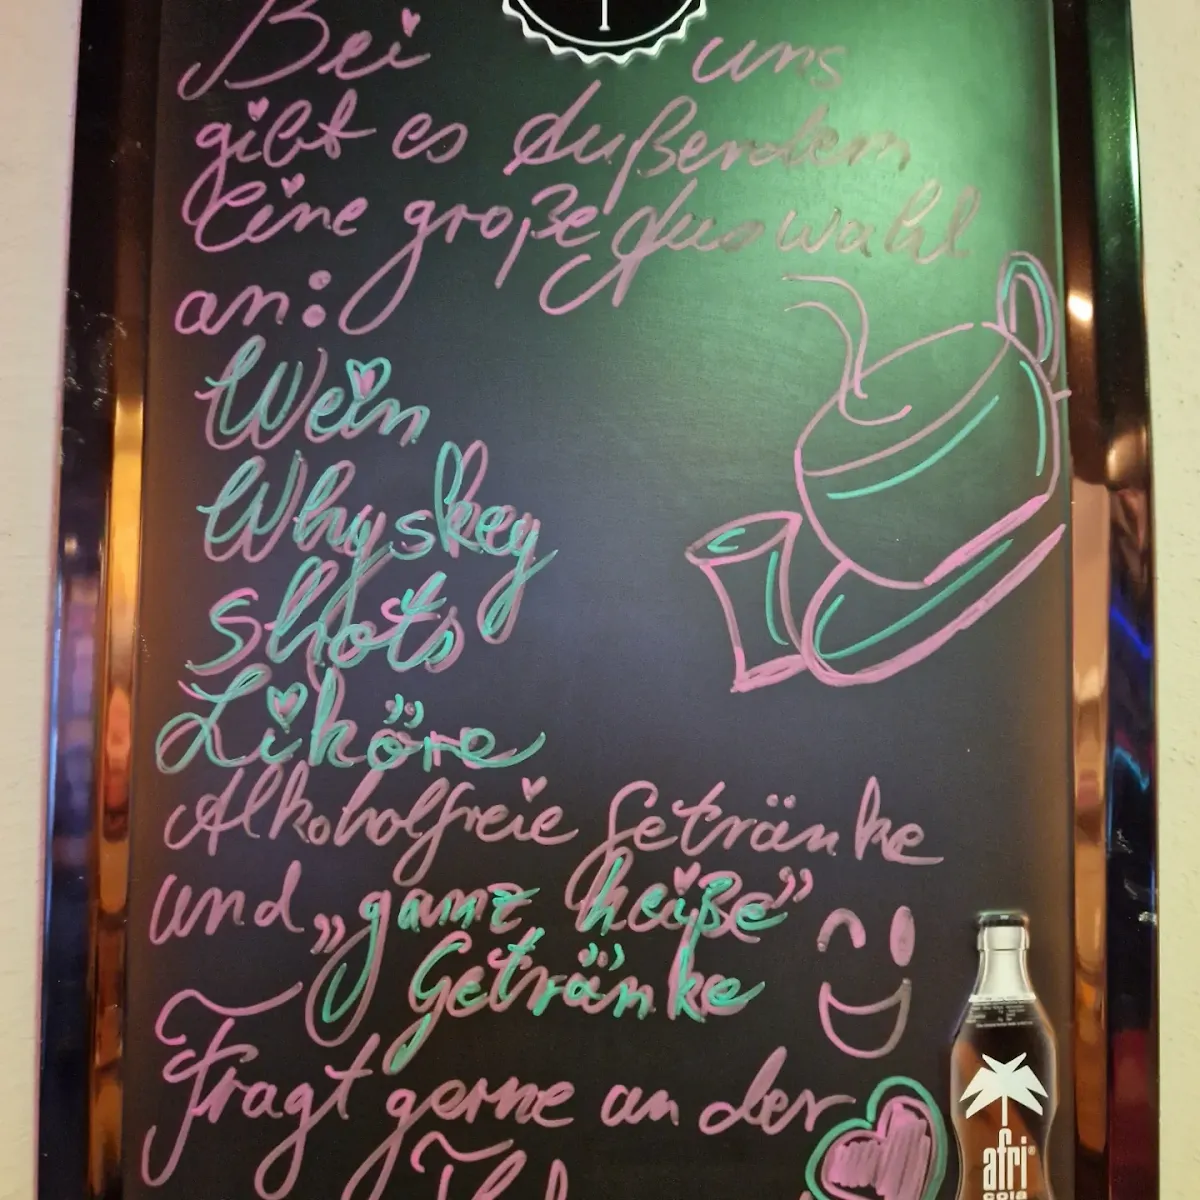 Bei uns
gibt es Außerdem
eine große Auswahl
an:
Wein
Whyskey
Shots
Liköre
Alkoholfreie Getränke
und „ganz heiße”
Getränke
Fragt gerne an der
afri
cola